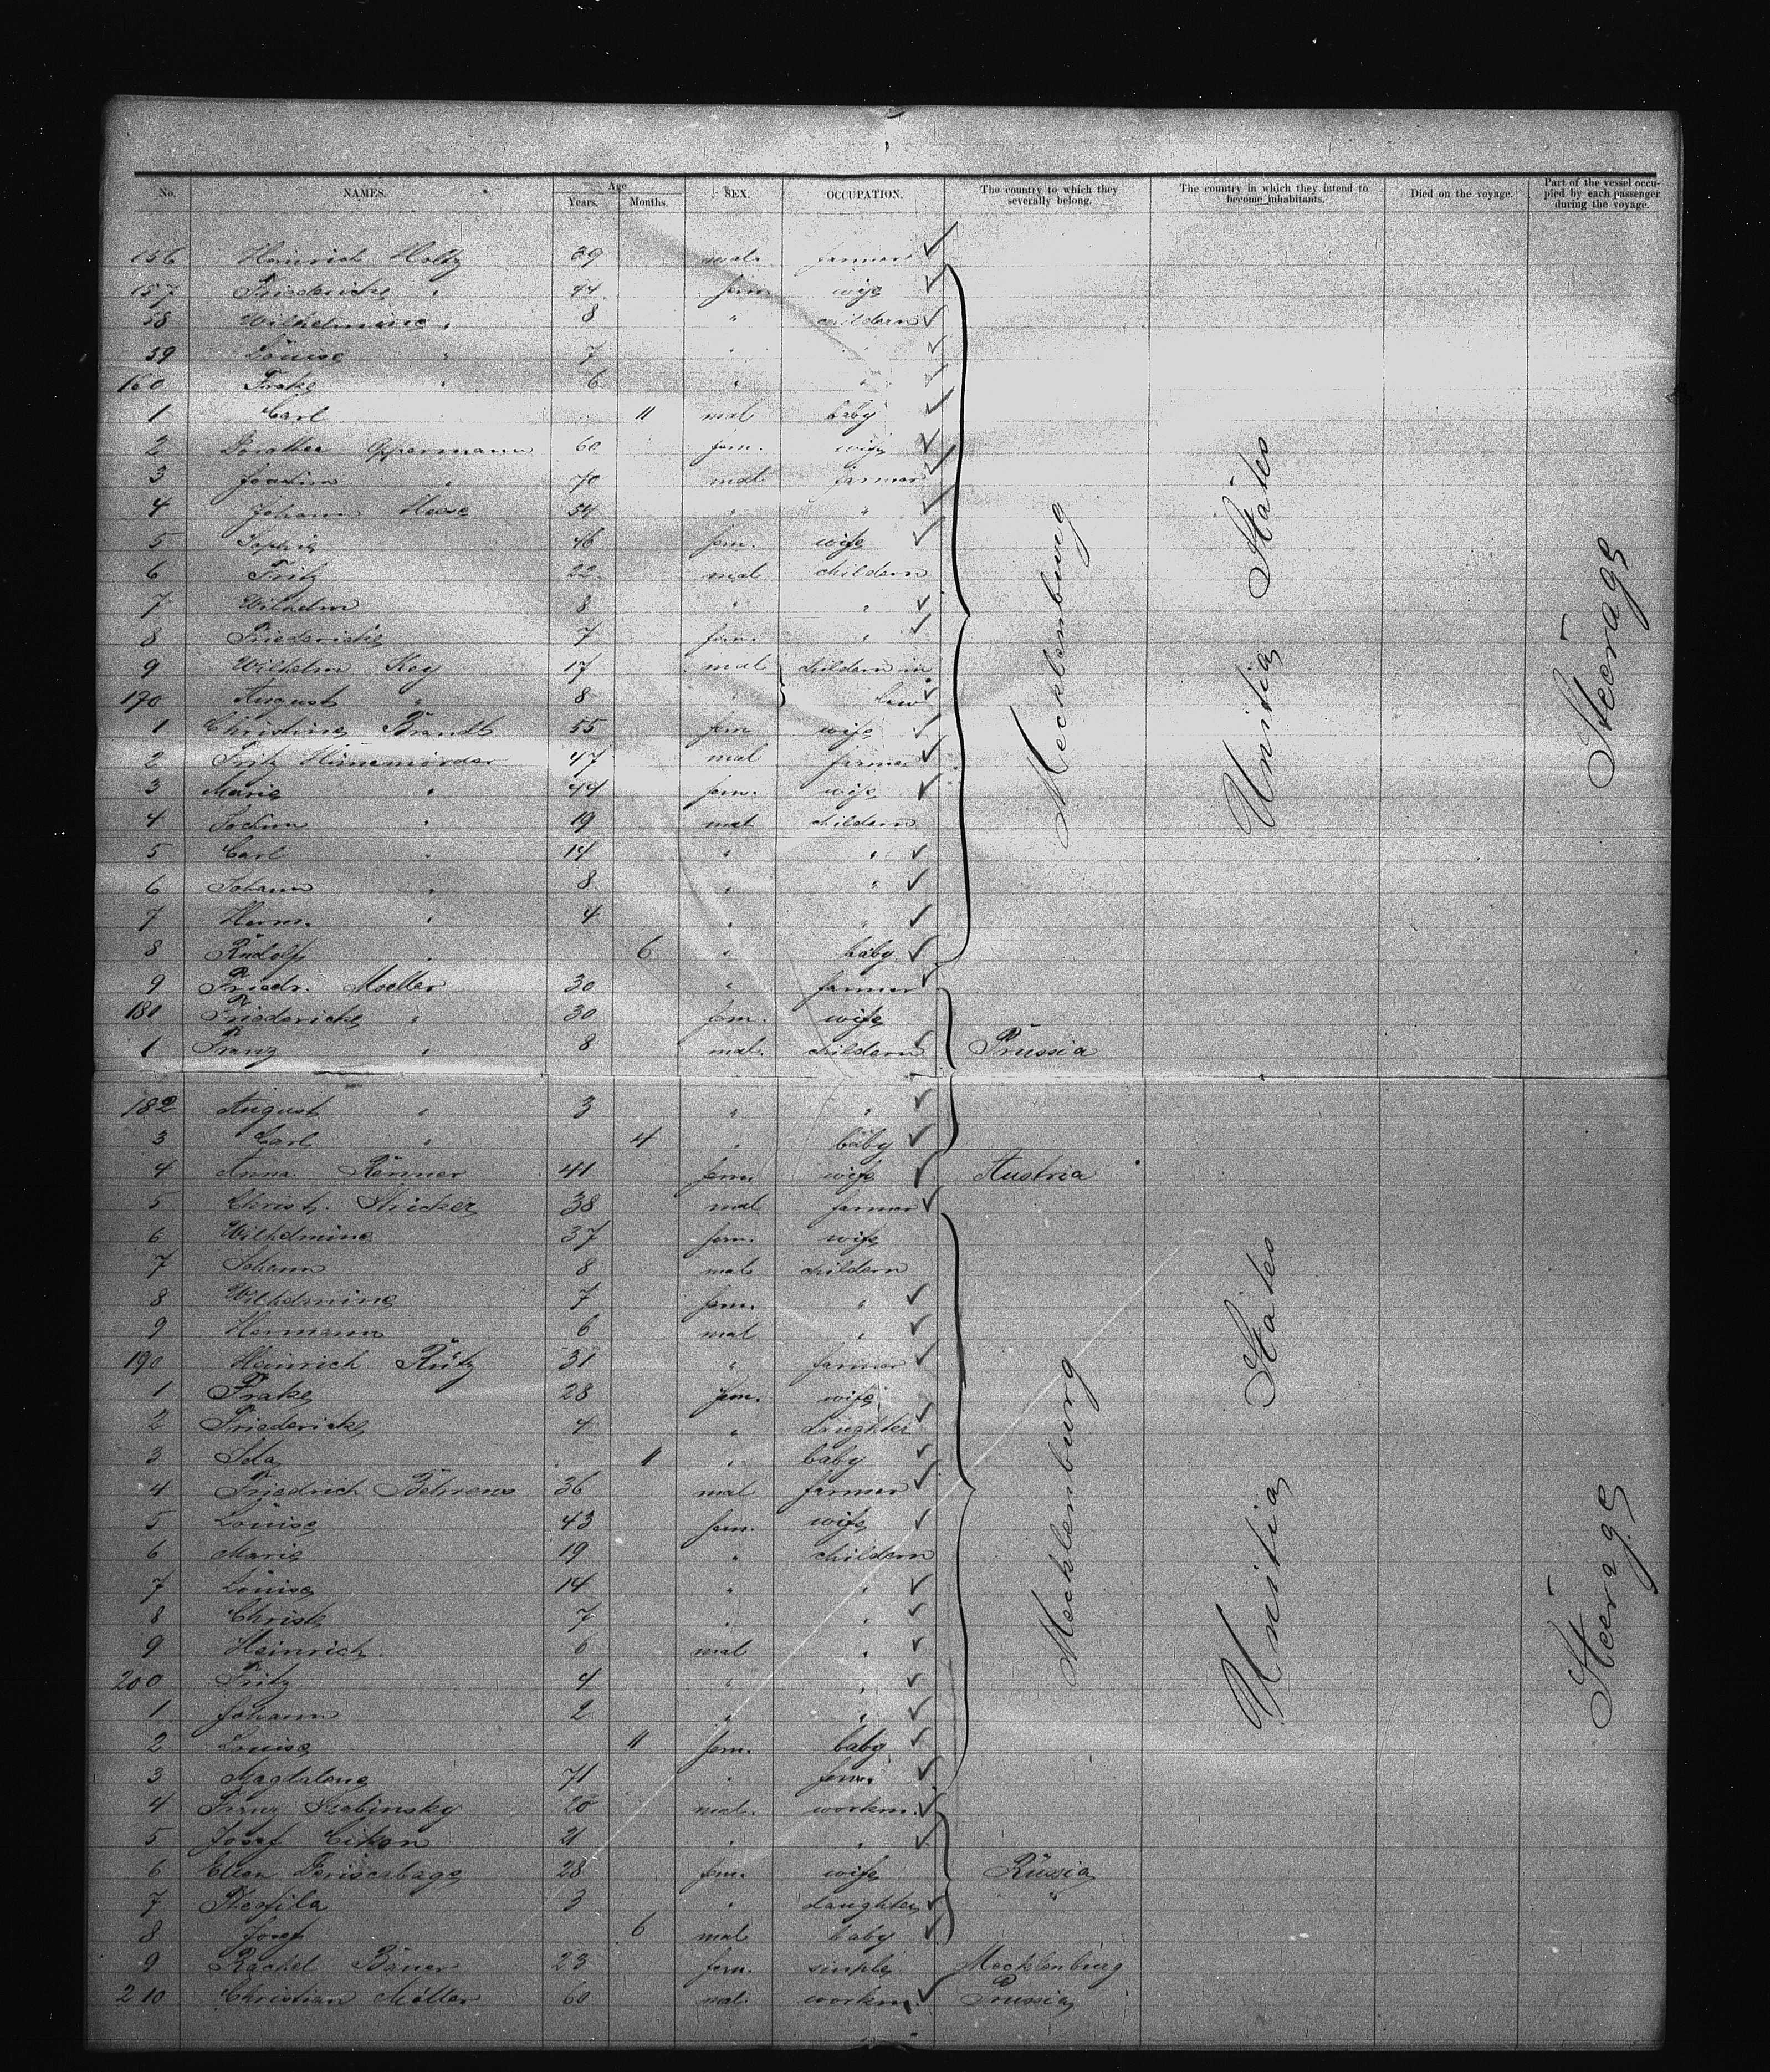 No. NAMES. Age Years. Months. SEX. OCCUPATION. The country to which they severally belong. The country in which they intend to become inhabitants. Died on the voyage. Part of the vessel occupied by each passenger during the voyage.
156 Heinrich Holtz 39 mal. farmer
157 Friedericke " 44 fem. wife
58 Wilhelmine " 8 " childern
59 Louise " 7 " "
160 Frake " 6 " "
1 Carl 11 mal baby
2 Dorothea Oppermann 60 fem. wife
3 Joachim " 70 mal farmer
4 Johann 54 " "
5 Sophie 46 fem. wife
6 Fritz 22 mal childern
7 Wilhelm 8 " "
8 Friedericke 7 fem. "
9 Wilhelm Key 17 mal childern in
170 August " 8 " law
1 Christine Brandt 55 fem wife
2 Fritz Hünemörder 47 mal farmer
3 Marie " 44 fem. wife
4 Jochim " 19 mal childern
5 Carl " 14 " "
6 Johann " 8 " "
7 Herm. " 4 " "
8 Rudolf " 6 " baby
Mecklenburg
Unitia States
Steerage
9 Friedr. Moeller 30 " farmer
180 Friedericke " 30 fem. wife
1 Franz " 8 mal. childern Prussia
182 August " 3 " "
3 Carl " 4 " baby
4 Anna Renner 41 fem. wife Austria
5 Christ. Stricker 38 mal farmer
6 Wilhelmine 37 fem. wife
7 Johann 8 mal childern
8 Wilhelmine 7 fem. "
9 Hermann 6 mal "
190 Heinrich Rütz 31 " farmer
1 Frake 28 fem. wife
2 Friedericke 4 " daughter
3 Ida 11 " baby
4 Friedrich Behrens 36 mal farmer
5 Louise 43 fem. wife
6 Marie 19 " childern
7 Louise 14 " "
8 Christe 7 " "
9 Heinrich 6 mal "
200 Fritz 4 " "
1 Johann 2 " "
2 Louise 11 fem. baby
3 Magdalene 71 " fem.
Mecklenburg
Unitia States
Steerage
4 Franz 20 mal. workm.
5 Josef 21 " "
6 28 fem. wife Russia
7 Teofila 3 " daughter "
8 Josef 6 mal baby
9 Rachel Bauer 23 fem. single Mecklenburg
210 Christian Möller 60 mal. workm. Prussia